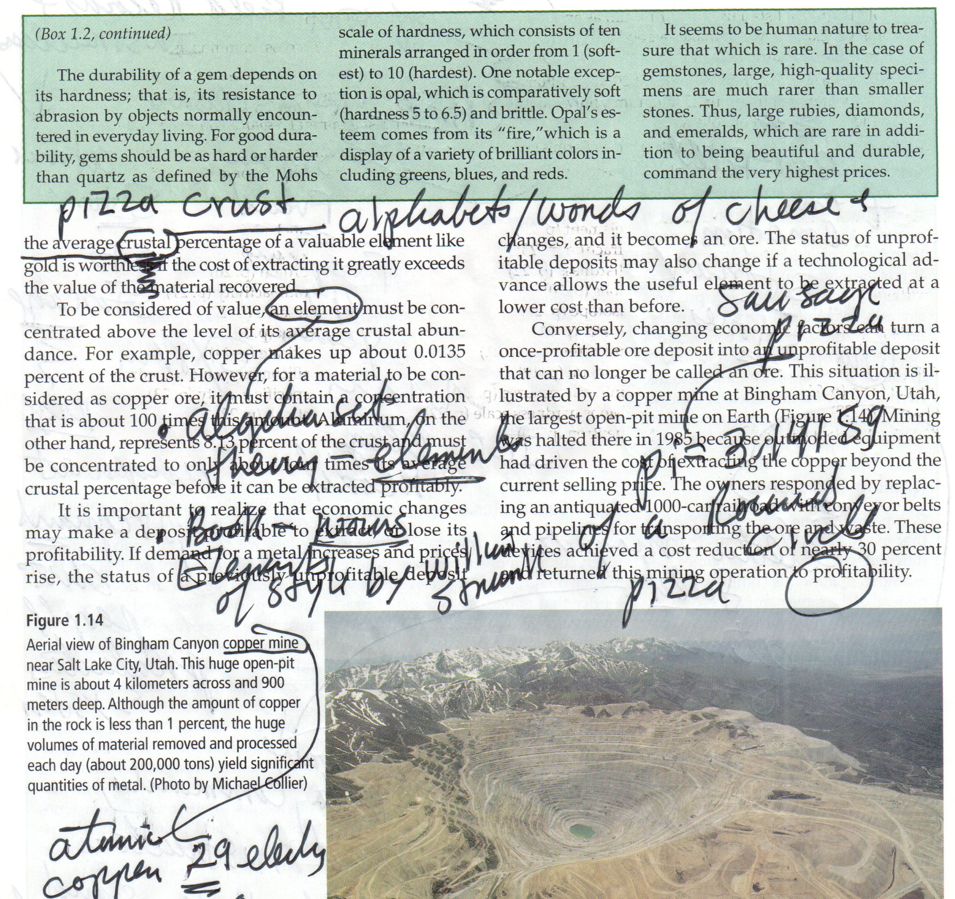 (Box 1.2, continued)
The durability of a gem depends on
its hardness; that is, its resistance to
abrasion by objects normally encoun-
tered in everyday living. For good dura-
bility, gems should be as hard or harder
than quartz as defined by the Mohs
scale of hardness, which consists of ten
minerals arranged in order from 1 (soft-
est) to 10 (hardest). One notable excep-
tion is opal, which is comparatively soft
(hardness 5 to 6.5) and brittle. Opal's es-
teem comes from its "fire," which is a
display of a variety of brilliant colors in-
cluding greens, blues, and reds.
It seems to be human nature to trea-
sure that which is rare. In the case of
gemstones, large, high-quality speci-
mens are much rarer than smaller
stones. Thus, large rubies, diamonds,
and emeralds, which are rare in addi-
tion to being beautiful and durable,
command the very highest prices.
pizza crust
alphabets/words of cheese &
the average crustal percentage of a valuable element like
gold is worthless if the cost of extracting it greatly exceeds
the value of the material recovered.
To be considered of value, an element must be con-
centrated above the level of its average crustal abun-
dance. For example, copper makes up about 0.0135
percent of the crust. However, for a material to be con-
sidered as copper ore, it must contain a concentration
that is about 100 times this amount. Aluminum, on the
other hand, represents 8.13 percent of the crust and must
be concentrated to only about four times its average
crustal percentage before it can be extracted profitably.
It is important to realize that economic changes
may make a deposit profitable to extract or lose its
profitability. If demand for a metal increases and prices
rise, the status of a previously unprofitable deposit
theory - elements
Book - Nouns
Elements
of style by William
Strunk
changes, and it becomes an ore. The status of unprof-
itable deposits may also change if a technological ad-
vance allows the useful element to be extracted at a
lower cost than before.
Conversely, changing economic factors can turn a
once-profitable ore deposit into an unprofitable deposit
that can no longer be called an ore. This situation is il-
lustrated by a copper mine at Bingham Canyon, Utah,
the largest open-pit mine on Earth (Figure 1.14). Mining
was halted there in 1985 because outmoded equipment
had driven the cost of extracting the copper beyond the
current selling price. The owners responded by replac-
ing an antiquated 1000-car railroad with conveyor belts
and pipelines for transporting the ore and waste. These
devices achieved a cost reduction of nearly 30 percent
and returned this mining operation to profitability.
sausage
pizza
pi = 3.14159
of a round
circle
pizza
Figure 1.14
Aerial view of Bingham Canyon copper mine
near Salt Lake City, Utah. This huge open-pit
mine is about 4 kilometers across and 900
meters deep. Although the amount of copper
in the rock is less than 1 percent, the huge
volumes of material removed and processed
each day (about 200,000 tons) yield significant
quantities of metal. (Photo by Michael Collier)
atomic
copper 29